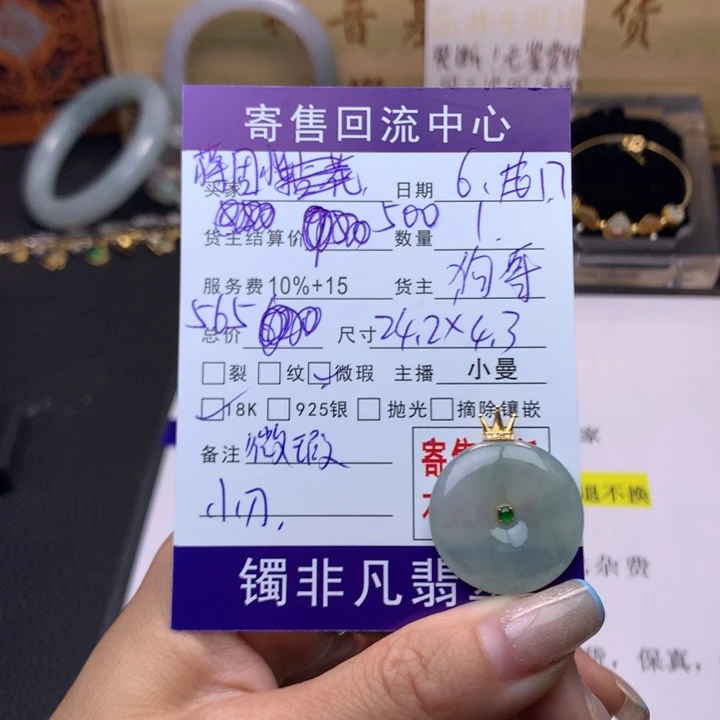 货
寄售回流中心
买家 日期 6.
货主结算价 500 数量 1.
服务费10%+15 货主 狗哥
565
总价 尺寸 24.2×4.3
裂 纹 微瑕 主播 小曼
18K 925银 抛光 摘除镶嵌
备注 微瑕
小刀.
寄售
镯非凡翡
家
退不换
杂费
货，保真，